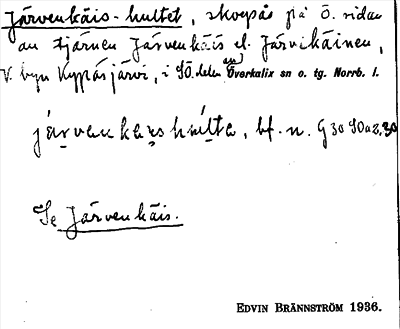 Järvenkäis-hultet, skogsås på Ö. sidan
av tjärnen Järvenkäis el. Järvikäinen,
V. byn Kypäsjärvi, i SÖ. delen av Överkalix sn o. tg. Norrb. l.
järvenkäishulta, bf. n. G 30 SO a 2.30
Se Järvenkäis.
EDVIN BRÄNNSTRÖM 1936.